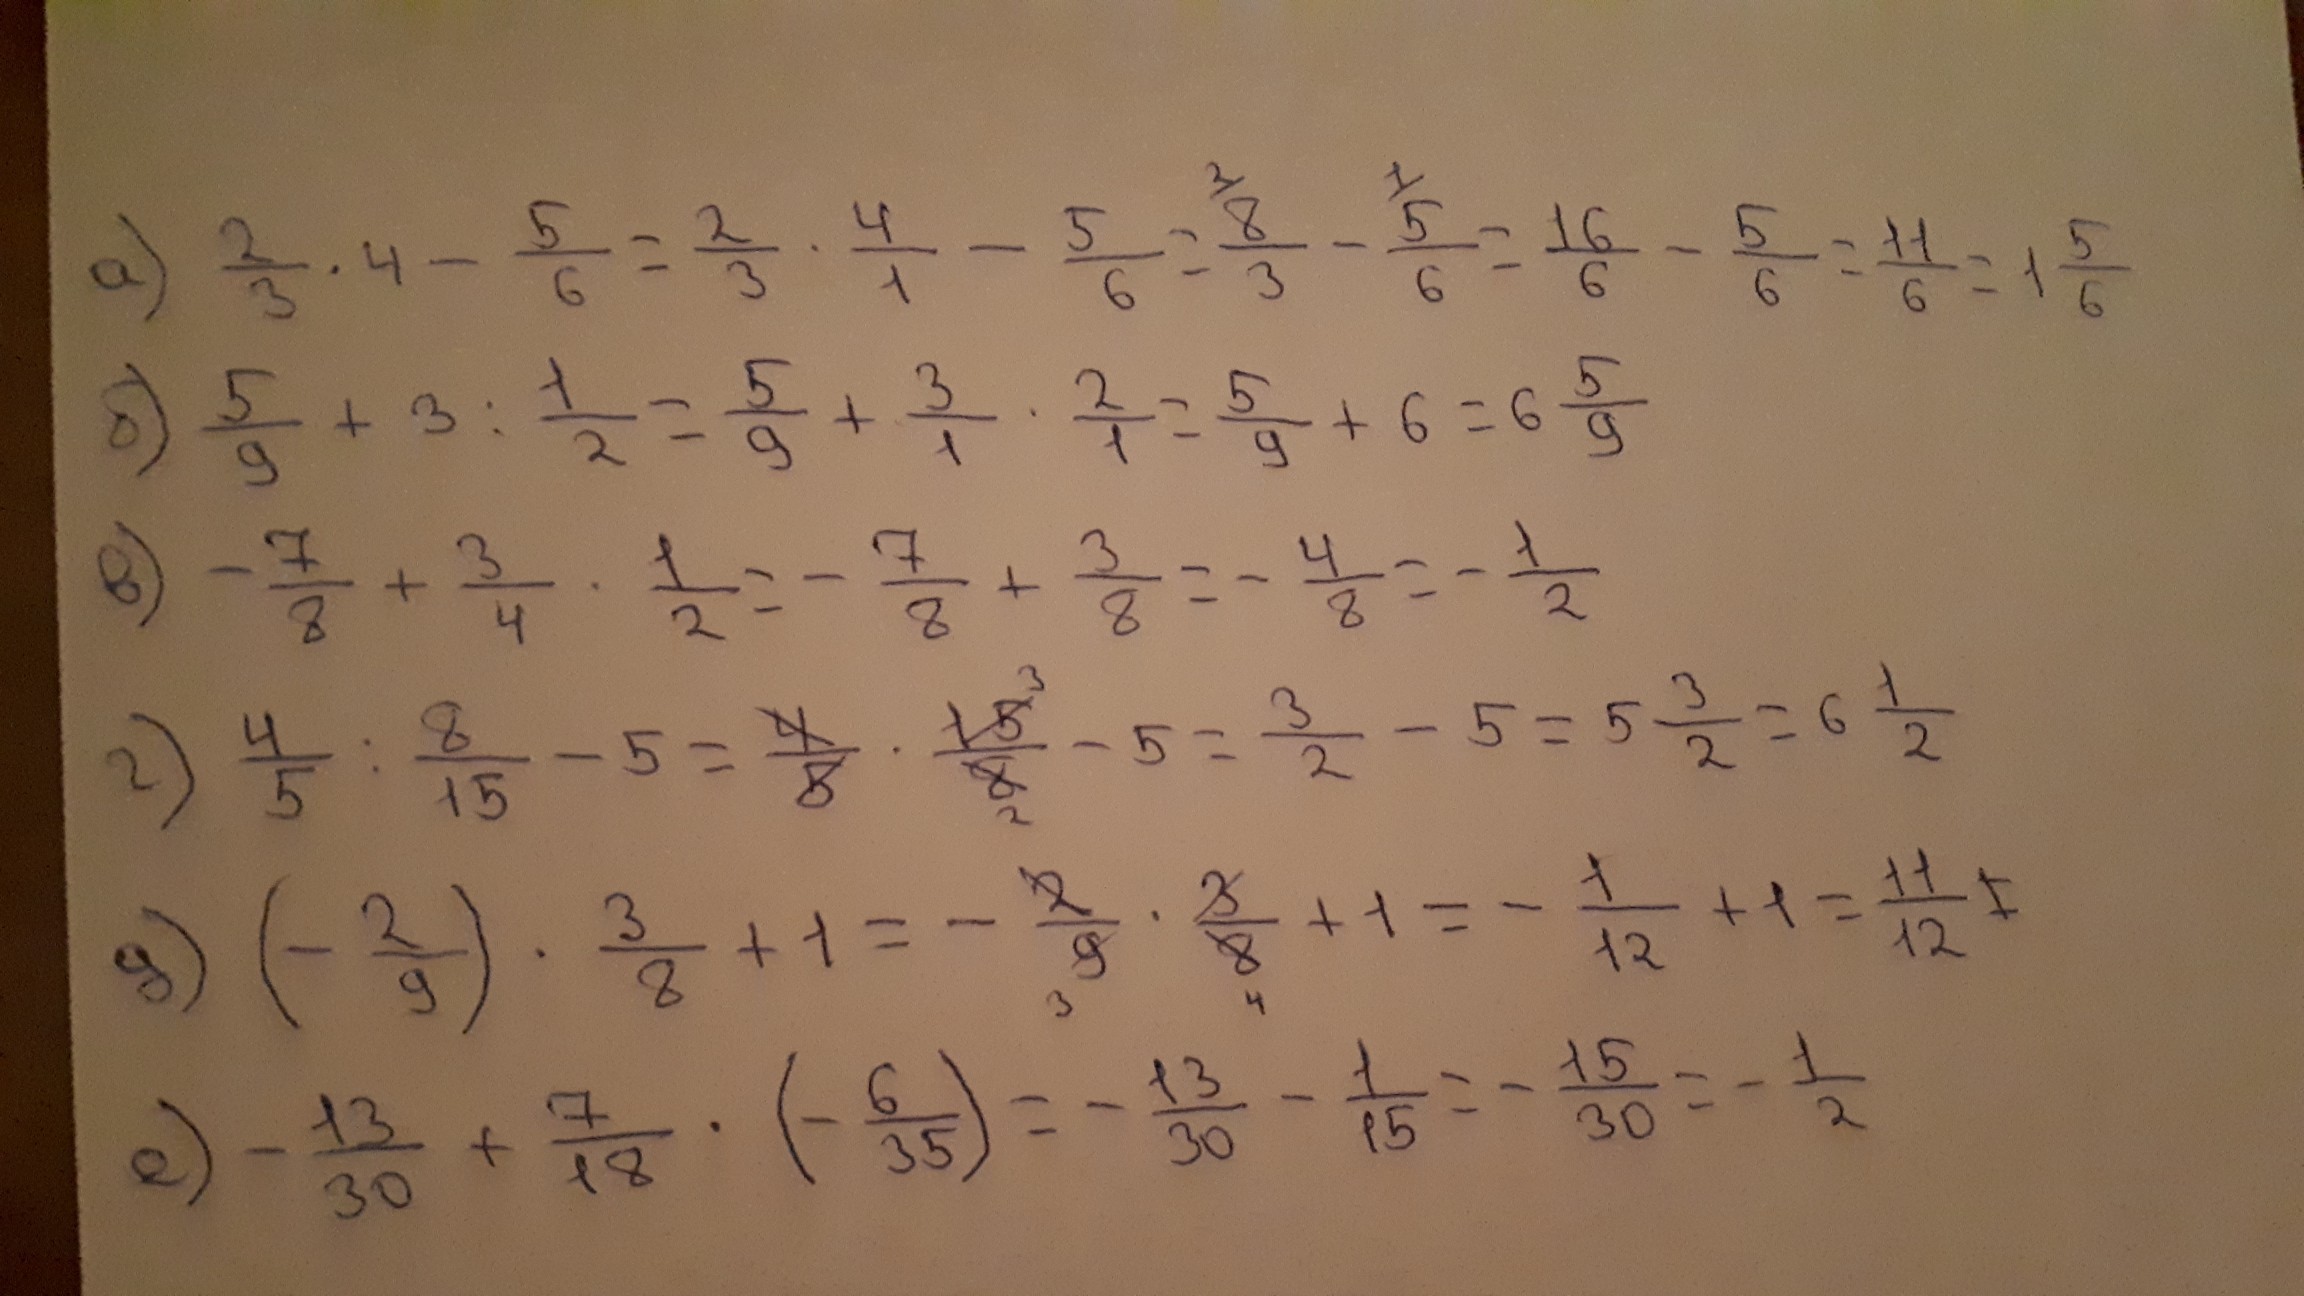 а) 2/3 · 4 - 5/6 = 2/3 · 4/1 - 5/6 = 2 8/3 - 1 5/6 = 16/6 - 5/6 = 11/6 = 1 5/6
б) 5/9 + 3 : 1/2 = 5/9 + 3/1 · 2/1 = 5/9 + 6 = 6 5/9
в) - 7/8 + 3/4 · 1/2 = - 7/8 + 3/8 = - 4/8 = - 1/2
г) 4/5 : 8/15 - 5 = 4/5 · 15/8 3 2 - 5 = 3/2 - 5 = 5 3/2 = 6 1/2
д) (- 2/9) · 3/8 + 1 = - 2/9 3 · 3/8 4 + 1 = - 1/12 + 1 = 11/12
е) - 13/30 + 7/18 · (- 6/35) = - 13/30 - 1/15 = - 15/30 = - 1/2